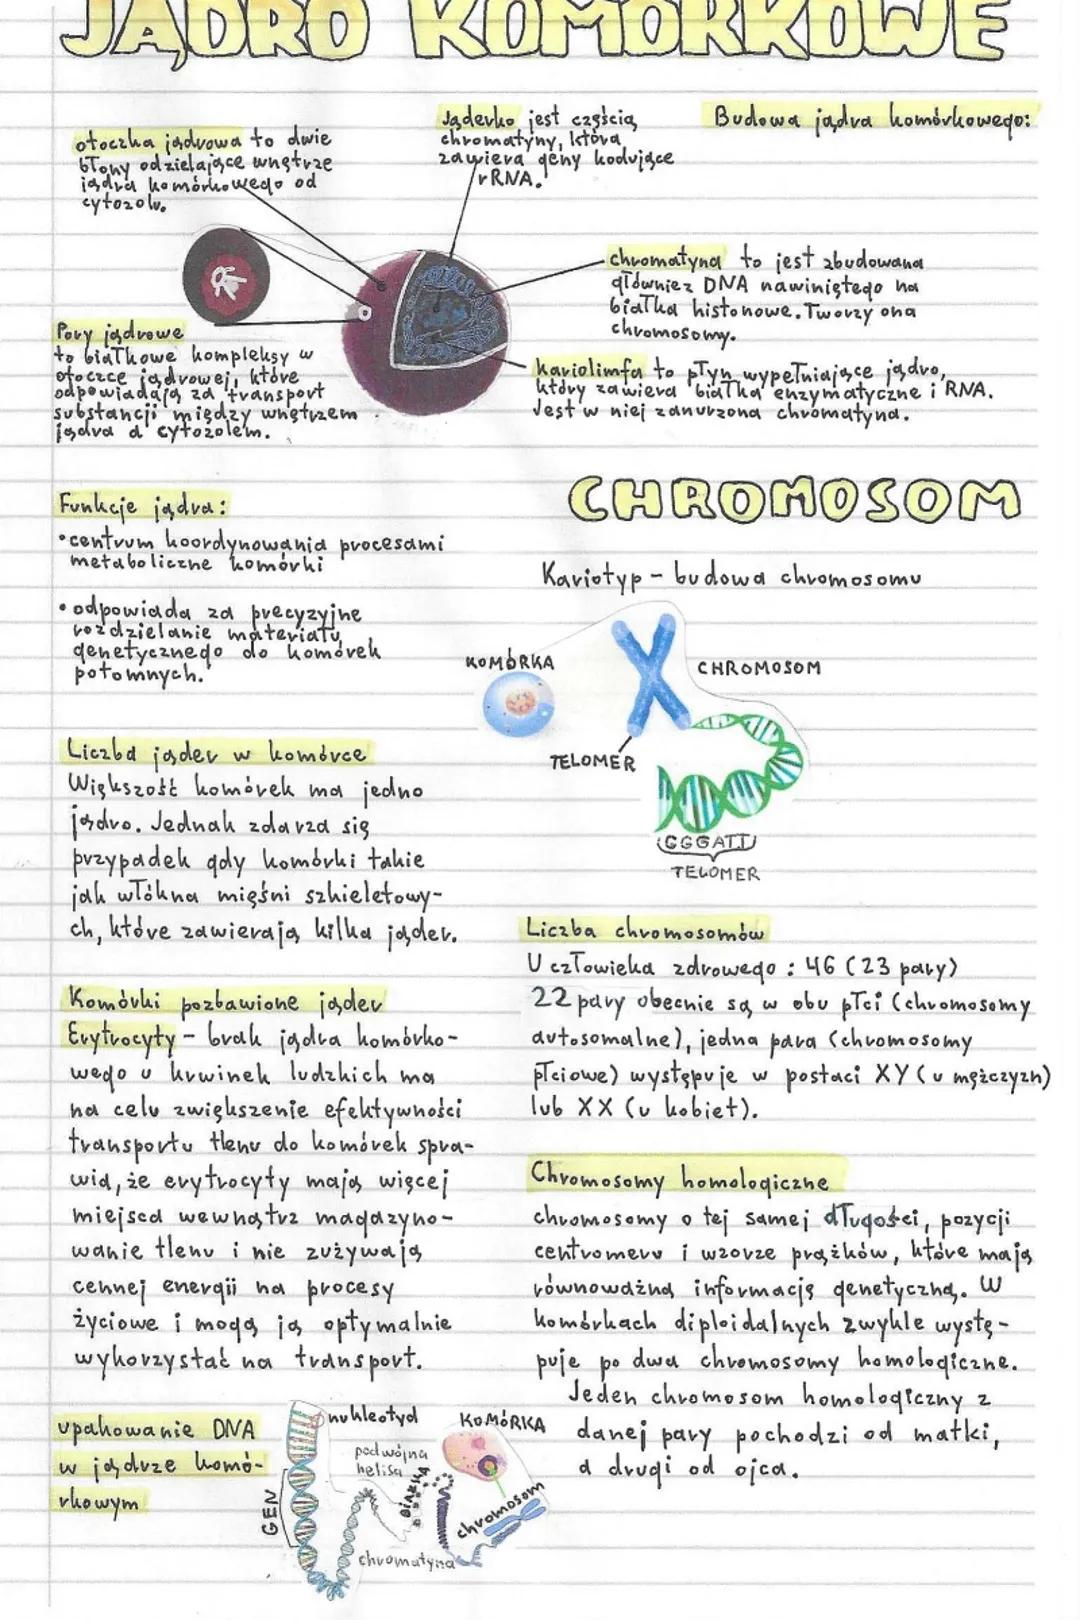 JĄDRO KOMÓRKOWE
otoczka jądrowa to dwie
błony odzielające wnętrze
jądra komórkowego od
cytozolu.
Jąderko jest częścią
chromatyny, która
zawiera geny kodujące
rRNA.
Budowa jądra komórkowego:
chromatyna to jest zbudowana
głównie z DNA nawiniętego na
białka histonowe. Tworzy ona
chromosomy.
Pory jądrowe
to białkowe kompleksy w
otoczce jądrowej, które
odpowiadają za transport
substancji między wnętrzem
jądra a cytozolem.
kariolimfa to płyn wypełniające jądro,
który zawiera białka enzymatyczne i RNA.
Jest w niej zanurzona chromatyna.
Funkcje jądra:
•centrum koordynowania procesami
metaboliczne komórki
•odpowiada za precyzyjne
rozdzielanie materiału
genetycznego do komórek
potomnych.
Liczba jąder w komórce
Większość komórek ma jedno
jądro. Jednak zdarza się
przypadek gdy komórki takie
jak włókna mięśni szkieletowy-
ch, które zawierają kilka jąder.
Komórki pozbawione jąder
Erytrocyty - brak jądra komórko-
wego u krwinek ludzkich ma
na celu zwiększenie efektywności
transportu tlenu do komórek spra-
wia, że erytrocyty mają więcej
miejsca wewnątrz magazyno-
wanie tlenu i nie zużywają
cennej energii na procesy
życiowe i mogą ją optymalnie
wykorzystać na transport.
upakowanie DNA
w jądrze komó-
rkowym
GEN
nukleotyd
podwójna
helisa
BIAŁKA
chromatyna
KOMÓRKA
chromosom
CHROMOSOM
Kariotyp - budowa chromosomu
KOMÓRKA
CHROMOSOM
TELOMER
GGGATT
TELOMER
Liczba chromosomów
U człowieka zdrowego : 46 (23 pary)
22 pary obecnie są w obu płci (chromosomy
autosomalne), jedna para (chromosomy
płciowe) występuje w postaci XY (u mężczyzn)
lub XX (u kobiet).
Chromosomy homologiczne
chromosomy o tej samej długości, pozycji
centromeru i wzorze prążków, które mają
równoważną informację genetyczną. W
komórkach diploidalnych zwykle wystę-
puje po dwa chromosomy homologiczne.
Jeden chromosom homologiczny z
danej pary pochodzi od matki,
a drugi od ojca.